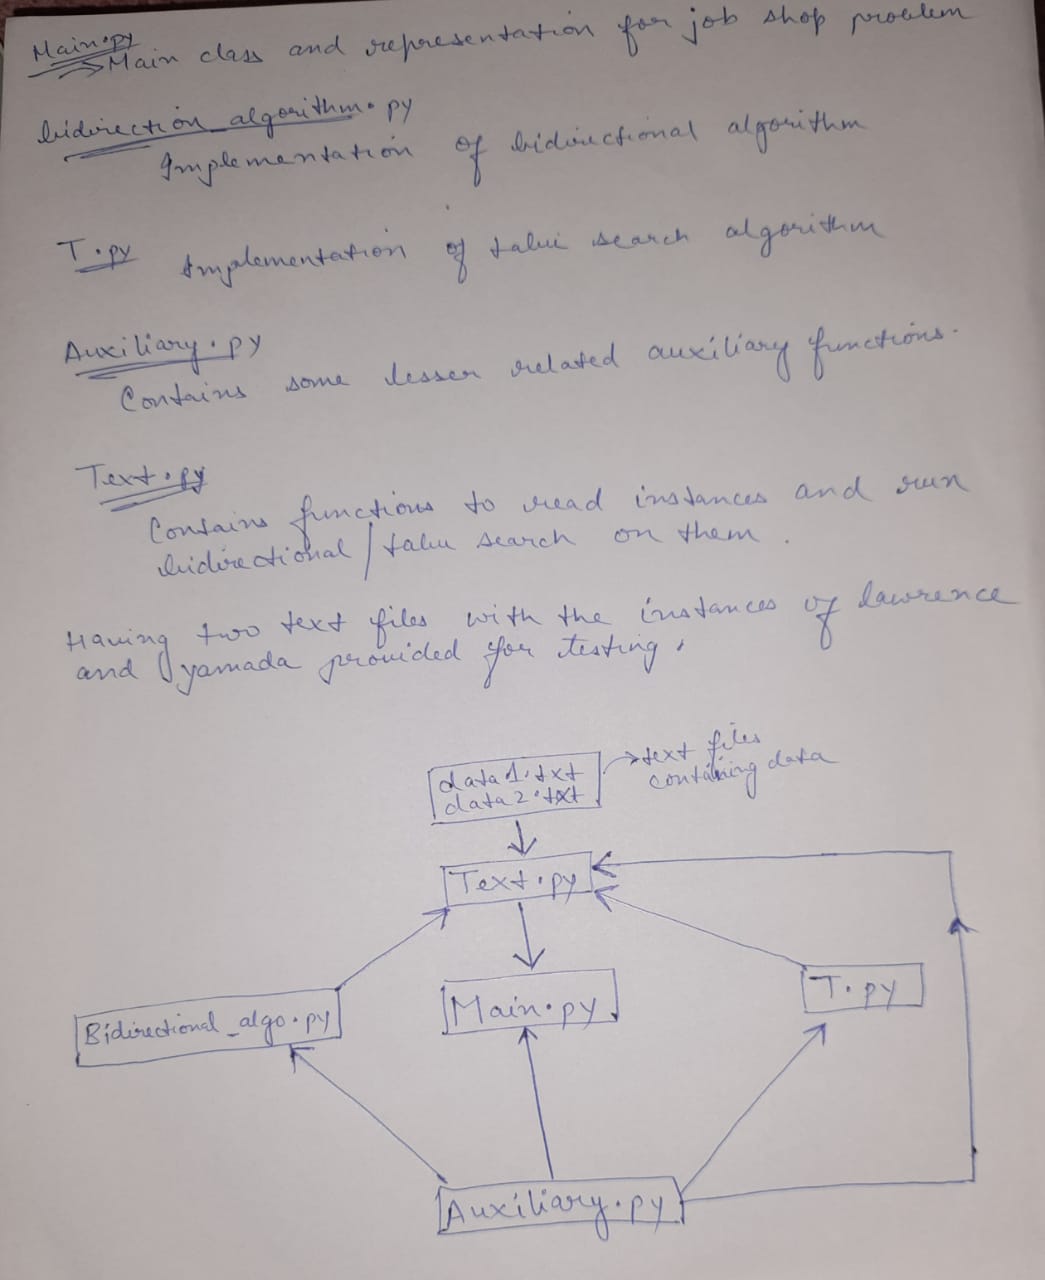 Main.py
Main class and representation for job shop problem
bidirection_algorithm.py
Implementation of bidirectional algorithm
T.py Implementation of tabu search algorithm
Auxiliary.py
Contains some lesser related auxiliary functions.
Text.py
Contains functions to read instances and run
bidirectional/tabu search on them.
Having two text files with the instances of lawrence
and yamada provided for testing.
data1.txt
data2.txt
text files
containing data
Text.py
Bidirectional_algo.py
Main.py
T.py
Auxiliary.py